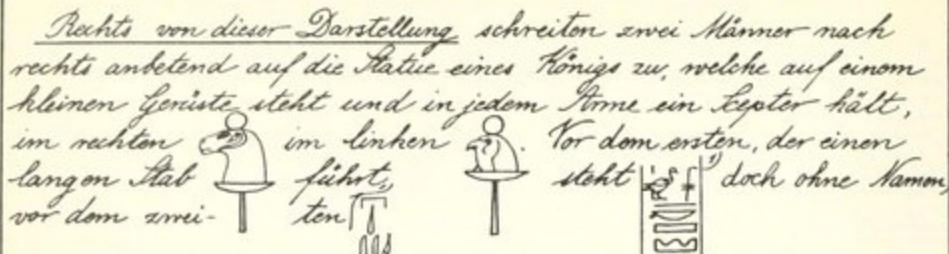 Rechts von dieser Darstellung schreiten zwei Männer nach
rechts anbetend auf die Statue eines Königs zu, welche auf einem
kleinen Gerüste steht und in jedem Arme ein Scepter hält,
im rechten im linken . Vor dem ersten, der einen
langen Stab führt, steht 1) doch ohne Namen,
vor dem zwei- ten